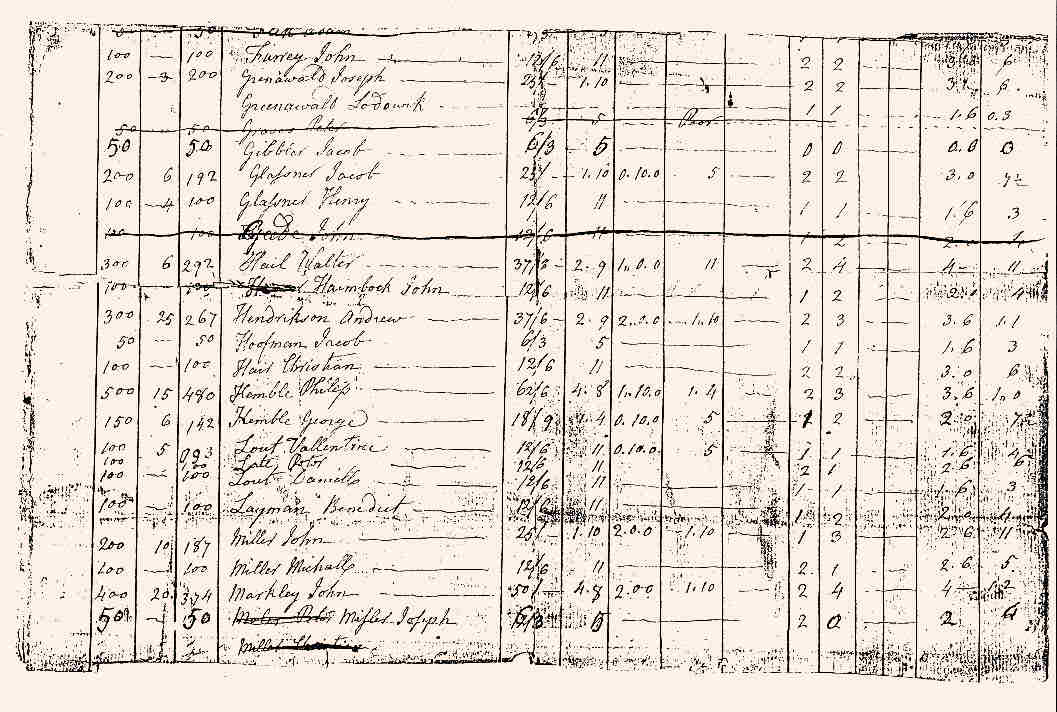 100 — 100 Furrey John 12/6 11 2 2 6
200 3 200 Grenawald Joseph 25/ 1.10 2 2 6
Greenawald Lodowick 1 1 1.6 0.3
50 50 Graves Peter 6/3 5 Poor
50 50 Gibbler Jacob 6/3 5 0 0 0.0 0
200 6 192 Glassner Jacob 25/ 1.10 0.10.0 5 2 2 3.0 7½
100 4 100 Glassner Henry 12/6 11 1 1 1.6 3
100 100 John 12/6 11 1 2 4
300 6 292 Hail Walter 37/3 2.9 1.0.0 11 2 4 4 11
100 Haimbock John 12/6 11 1 2 4
300 25 267 Hendrikson Andrew 37/6 2.9 2.0.0 1.10 2 3 3.6 1.1
50 — 50 Hoofman Jacob 6/3 5 1 1 1.6 3
100 — 100 Hair Christian 12/6 11 2 2 3.0 6
500 15 480 Hemble Philip 62/6 4.8 1.10.0 1.4 2 3 3.6 1.0
150 6 142 Hemble George 18/9 1.4 0.10.0 5 1 2 2.0 7½
100 5 093 Lout Vallentine 12/6 11 0.10.0 5 1 1 1.6
100 100 Late Peter 12/6 11 2 1 2.6 6
100 — 100 Lout Daniell 12/6 11 1 1 1.6 3
100 — 100 Layman Benedict 12/6 11 1 2 4
200 10 187 Miller John 25/ 1.10 2.0.0 1.10 1 3 2.6 11
100 — 100 Miller Michall 12/6 11 2 1 2.6 5
400 20 374 Markley John 50/ 4.8 2.00 1.10 2 4 4
50 50 Misler Joseph 6/3 5 2 0 2
Miller